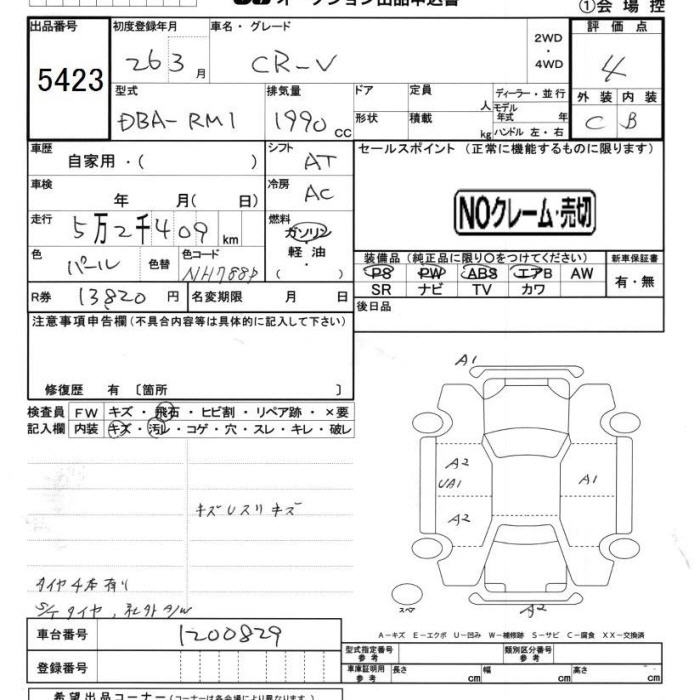 オークション出品申込書
①会場控
出品番号 5423
初度登録年月 26 3月
車名・グレード CR-V
2WD・4WD
評価点 4
外装 C 内装 B
型式 DBA-RM1
排気量 1990 cc
ドア 形状
定員 人 積載 kg
ディーラー・並行
モデル年式 年
ハンドル 左・右
車歴 自家用・( )
シフト AT
車検 年 月( 日)
冷房 AC
走行 5万2千409 km
燃料 ガソリン 軽油 ( )
色 パール 色替 色コード NH788P
R券 13820円 名変期限 月 日
セールスポイント(正常に機能するものに限ります)
NOクレーム・売切
装備品(純正品に限り○をつけてください)
新車保証書 有・無
PS PW ABS エアB AW
SR ナビ TV カワ
後日品
注意事項申告欄(不具合内容等は具体的に記入して下さい)
修復歴 有 〔箇所 〕
検査員 FW キズ・飛石・ヒビ割・リペア跡・×要
記入欄 内装 キズ・汚レ・コゲ・穴・スレ・キレ・破レ
キズUスリキズ
タイヤ4本有り
S/Tタイヤ、社外A/W
A1
A2
UA1
A1
A2
スペア
A2
A-キズ E-エクボ U-凹み W-補修跡 S-サビ C-腐食 XX-交換済
車台番号 1200829
登録番号
型式指定番号 参考 類別区分番号 参考
車庫証明用 参考 長さ cm 幅 cm 高さ cm
希望出品コーナー(コーナーは各会場により異なります。)